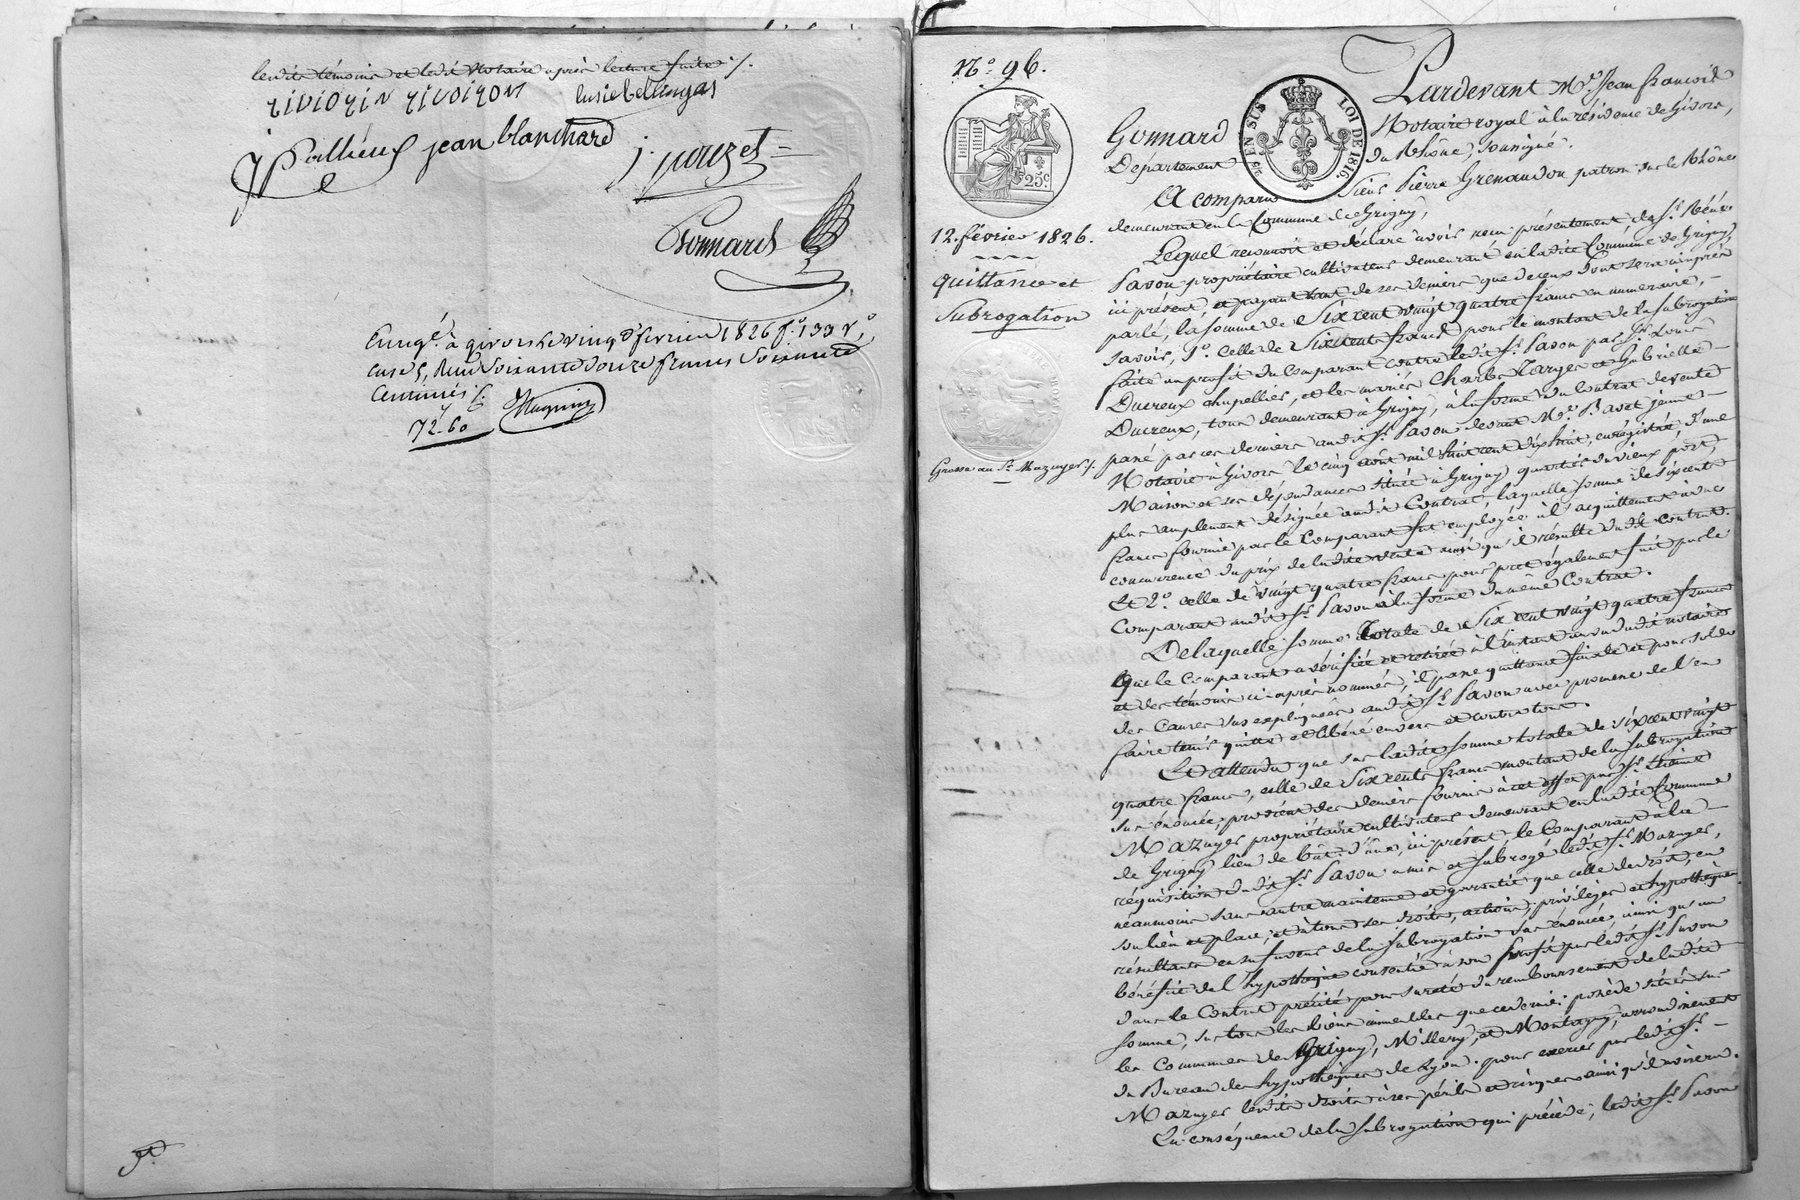 lesdits témoins et ledit Notaire après lecture faite ./.
J. pouzet
jean blanchard
Gonnard
Enregé. à givors le vingt février 1826 fo. 133 Vo.
case 5, Reçu soixante douze francs soixante
Centimes ./.
72-60
No. 96.
25c
EN SUS
LOI DE 1816.
12. février 1826.
quittance et
Subrogation
Grosse au Sr. Mazuyer ./.
Pardevant Me. Jean François
Gonnard Notaire royal à la résidence de Givors,
Département du Rhône, soussigné.
A comparu Sieur Pierre Grenaudon patron sur le Rhône
demeurant en la Commune de Grigny,
Lequel reconnoit et déclare avoir reçu présentement de Sr. Réné
Pavon propriétaire cultivateur demeurant en ladite Commune de Grigny,
ici présent, et payant tant de ses deniers que de ceux dont sera ci-après
parlé, la somme de Six cent vingt quatre francs en numéraire,
Savoir, 1o. Celle de Six cents francs pour le montant de la subrogation
faite au profit du Comparant contre ledit Sr. Pavon par Sr. Louis
Ducreux chapellier, et les mariés Charles Zarges et Gabrielle
Ducreux, tous demeurant à Grigny, à la forme du Contrat de vente
passé par ces derniers audit Sr. Pavon devant Me. Bavet jeune
Notaire à Givors le cinq août mil huit cent dix huit, enregistré, d'une
Maison et ses dépendances située à Grigny quartier du vieux port,
plus amplement désignée audit Contrat, laquelle somme de six cent
francs fournie par le Comparant fut employée à l'acquittement à due
concurrence du prix de ladite vente ainsi qu'il résulte dudit contrat.
Et 2o. celle de vingt quatre francs pour prêt également fait par le
Comparant audit Sr. Pavon à la forme du même Contrat.
De laquelle somme totale de Six cent vingt quatre francs
que le Comparant a vérifiée et retirée à l'instant au vu dudit notaire
et des témoins ci-après nommés, il passe quittance finale et pour solde
des Causes sus expliquées audit Sr. Pavon avec promesse de l'en
faire tenir quitte et libéré envers et contre tous.
Et attendu que sur ladite somme totale de six cent vingt
quatre francs, celle de Six cents francs montant de la subrogation
sus énoncée, provient des deniers fournis à cet effet par Sr. Etienne
Mazuyer propriétaire cultivateur demeurant en ladite Commune
de Grigny lieu de bât-d'âne, ici présent, le Comparant à la
réquisition dudit Sr. Pavon a mis et subrogé ledit Sr. Mazuyer,
néanmoins sans autre maintenue et garantie que celle de droit, en
son lieu et place, et à tous ses droits, actions, privilèges et hypothèques
résultants en sa faveur de la subrogation sus énoncée, ainsi qu'au
bénéfice de l'hypothèque consentie à son profit par ledit Sr. Pavon
dans le Contrat précité pour sureté du remboursement de ladite
somme, sur tous les biens immeubles que ce dernier possède situés sur
les Communes de Grigny, Millery, et Montagny, arrondissement
du Bureau des hypothèques de Lyon. pour exercer par ledit Sr.
Mazuyer lesdits droits à ses périls et risques ainsi qu'il avisera.
En conséquence de la subrogation qui précède, ledit Sr. Pavon